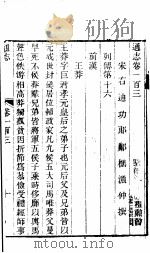 通志卷一百三
宋右迪功郎鄭樵漁仲撰
列傳第十六
前漢
王莽
王莽字巨君孝元皇后之弟子也元后父及兄弟皆以
元成世封侯居位輔政家凡九侯五大司馬唯莽父曼
早死不侯莽羣兄弟皆將軍五侯子乘時侈靡以輿馬
聲色佚游相高莽獨孤貧因折節爲恭儉受禮經師事
通志 卷一百三